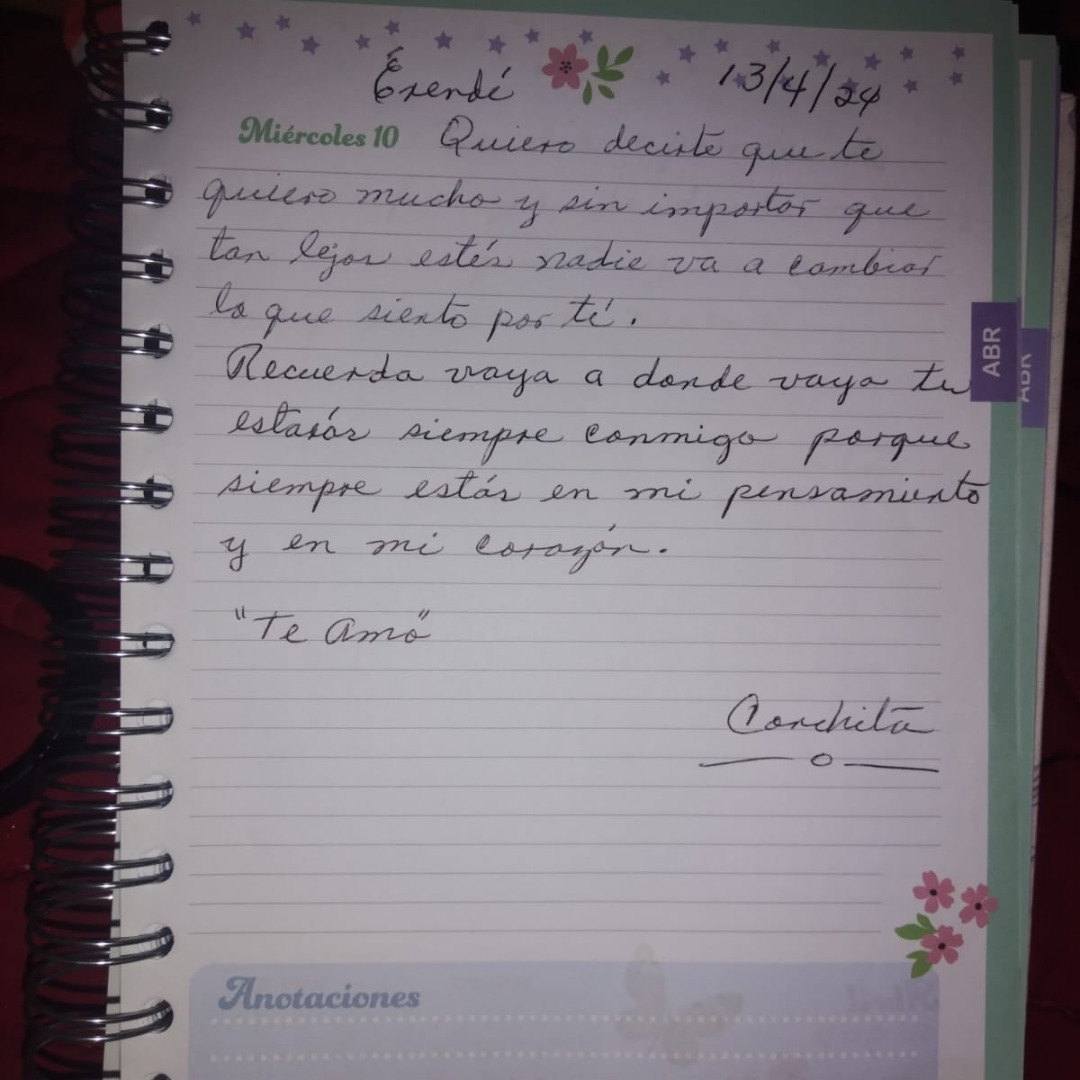 Érendé 13/4/24
Miércoles 10 Quiero decirte que te
quiero mucho y sin importar que
tan lejos estés nadie va a cambiar
lo que siento por tí.
Recuerda vaya a donde vaya tu
estarás siempre conmigo porque
siempre estás en mi pensamiento
y en mi corazón.
"Te Amo"
Conchita
ABR
ABR
Anotaciones